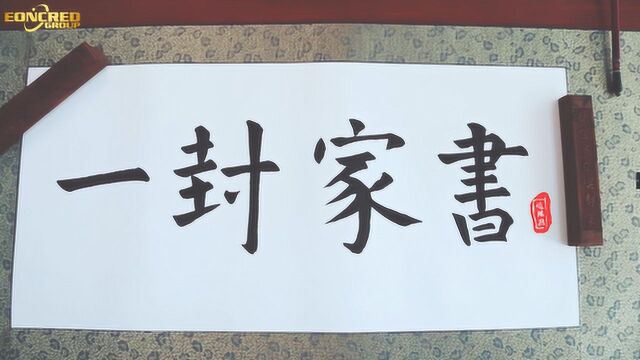 EONCRED
GROUP
一封家書